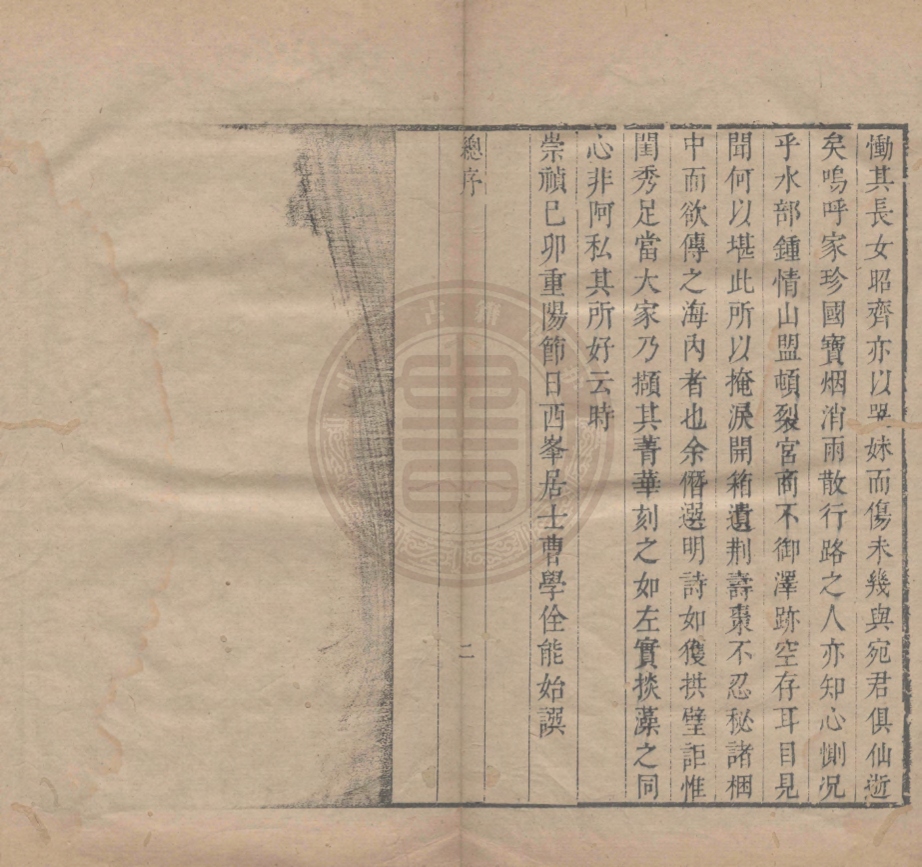 慟其長女昭齊亦以哭妹而傷未幾與宛君俱仙逝
矣嗚呼家珍國寶烟消雨散行路之人亦知心惻况
乎水部鍾情山盟頓裂宮商不御澤跡空存耳目見
聞何以堪此所以掩淚開箱遺荆壽棗不忍秘諸梱
中而欲傳之海內者也余僭選明詩如獲拱璧詎惟
閨秀足當大家乃擷其菁華刻之如左實掞藻之同
心非阿私其所好云時
崇禎己卯重陽節日西峯居士曹學佺能始譔
總序
二